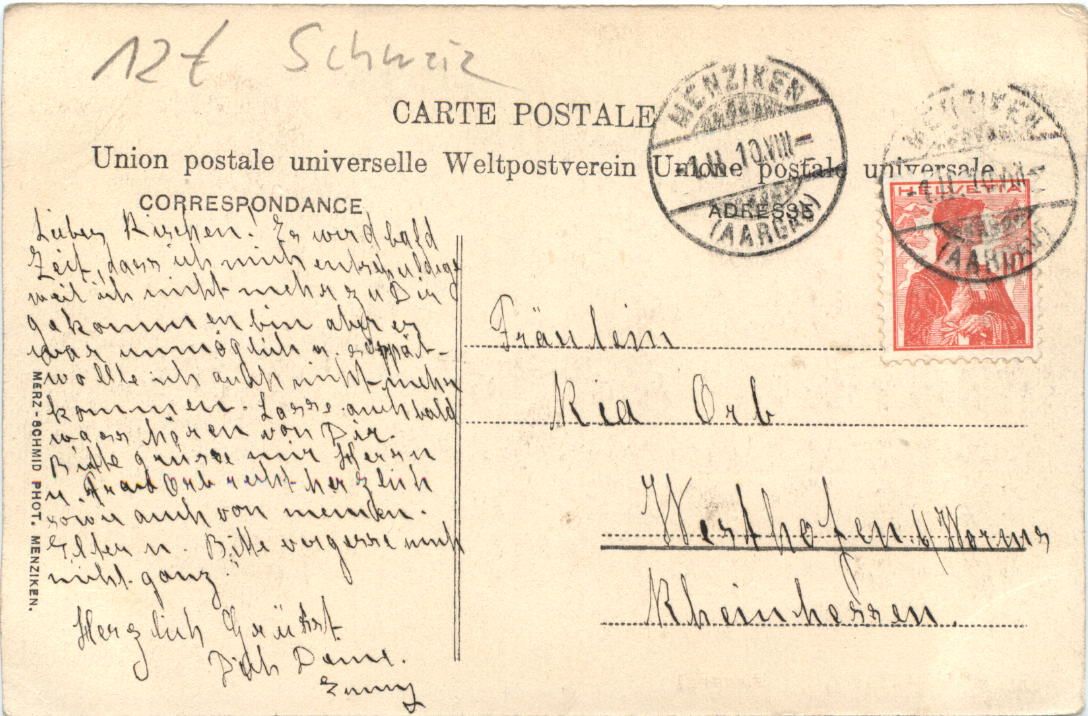 12 f Schweiz
CARTE POSTALE
Union postale universelle Weltpostverein Unione postale universale
MENZIKEN
1.II.10.VIII
(AARGAU)
MENZIKEN
1.II.10.VIII
(AARGAU)
HELVETIA
CORRESPONDANCE
ADRESSE
Liebes Riechen. Es wird bald
Zeit, dass ich mich entschuldige
weil ich nicht mehr zu Dir
gekommen bin aber es
war unmöglich u. so spät
wollte ich auch nicht mehr
kommen. Lasse auch bald
was hören von Dir.
Bitte grüsse mir Herrn
u. Frau Orb recht herzlich
sowie auch von meinen
Eltern u. Bitte vergesse mich
nicht ganz.
Herzlich Grüsst
Dich Deine
Emmy
Fräulein
Ria Orb
Westhofen b/Worms
Rheinhessen.
MERZ-SCHMID PHOT. MENZIKEN.